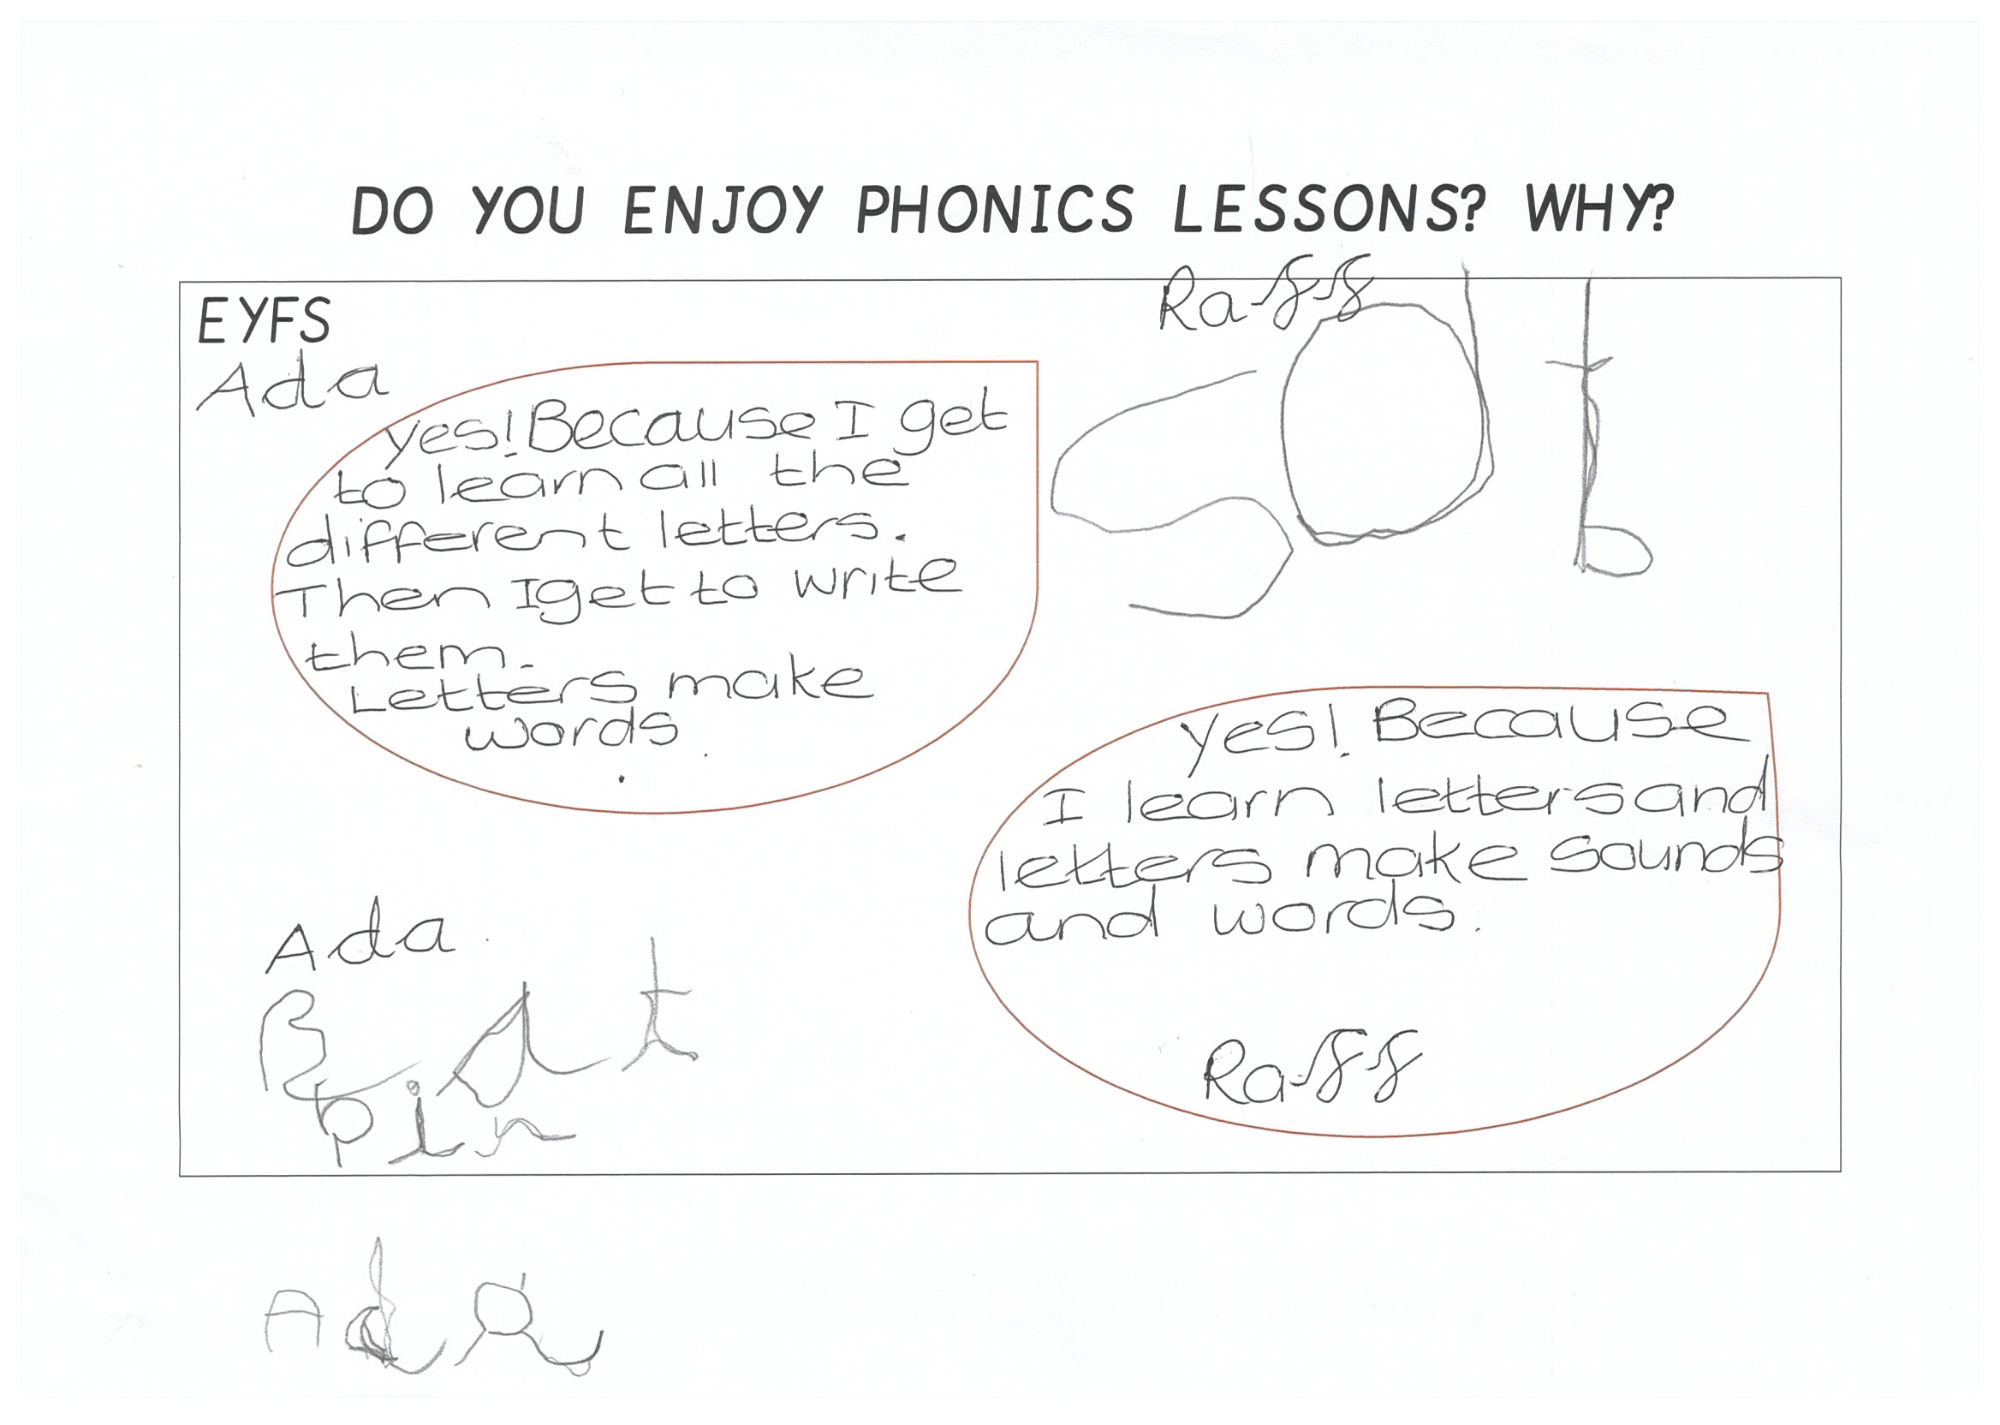 DO YOU ENJOY PHONICS LESSONS? WHY?
EYFS
Ada
yes! Because I get
to learn all the
different letters.
Then I get to write
them.
Letters make
words.
Raff
yes! Because
I learn letters and
letters make sounds
and words.
Raff
Ada
pin
Ada